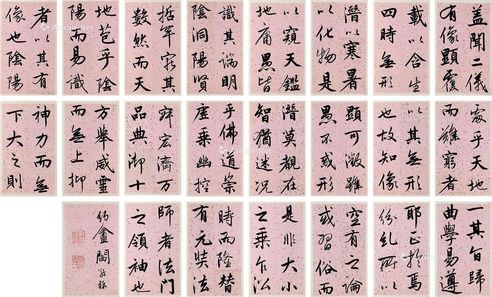 蓋聞二儀
有像顯覆
載以含生
四時無形
潛以寒暑
以化物是
以窺天鑑
地庸愚皆
識其端明
陰洞陽賢
哲罕窮其
數然而天
地苞乎陰
陽而易識
者以其有
像也陰陽
處乎天地
而難窮者
以其無形
也故知像
顯可徵雖
愚不惑形
潛莫覩在
智猶迷況
乎佛道崇
虛乘幽控
寂宏濟萬
品典御十
方舉威靈
而無上抑
神力而無
下大之則
一其旨歸
曲學易遵
耶正於焉
紛糺所以
空有之論
或習俗而
是非大小
之乘乍沿
時而隆替
有元奘法
師者法門
之領袖也
約盦